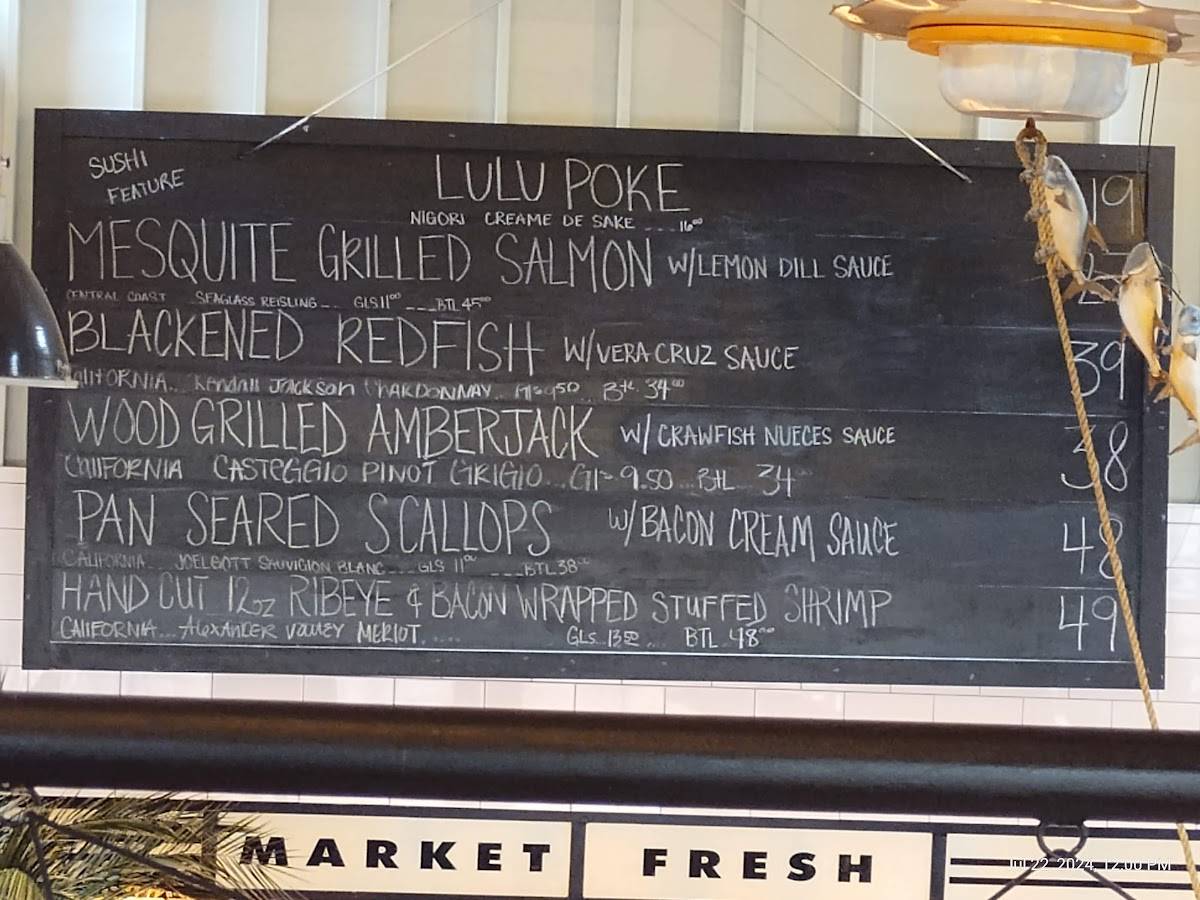 SUSHI FEATURE LULU POKE 19
NIGORI CREAME DE SAKE ... 16⁰⁰
MESQUITE GRILLED SALMON W/LEMON DILL SAUCE
CENTRAL COAST SEAGLASS REISLING ... GLS 11⁰⁰ ... BTL 45⁰⁰
BLACKENED REDFISH W/VERA CRUZ SAUCE 39
CALIFORNIA... Kendall Jackson CHARDONNAY... Gl 9.50 Btl. 34⁰⁰
WOOD GRILLED AMBERJACK W/ CRAWFISH NUECES SAUCE 38
CALIFORNIA CASTEGGIO PINOT GRIGIO... Gl- 9.50 ... Btl 34⁰⁰
PAN SEARED SCALLOPS W/BACON CREAM SAUCE 48
CALIFORNIA... JOELGOTT SAUVIGION BLANC... GLS 11⁰⁰ ... BTL 38⁰⁰
HAND CUT 12oz RIBEYE & BACON WRAPPED STUFFED SHRIMP 49
CALIFORNIA... ALEXANDER VALLEY MERLOT...... GLS. 13⁵⁰ ... BTL 48⁰⁰
MARKET FRESH
Jul 22, 2024, 12:00 PM